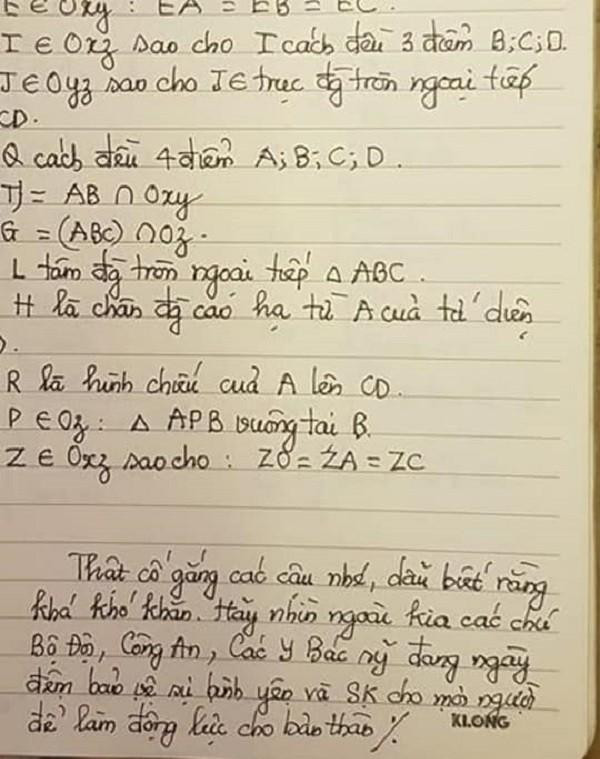 E ∈ Oxy : EA = EB = EC.
I ∈ Oxz sao cho I cách đều 3 điểm B;C;D.
J ∈ Oyz sao cho J ∈ trục đg tròn ngoại tiếp
CD.
Q cách đều 4 điểm A;B;C;D.
= AB ∩ Oxy
G = (ABC) ∩ Oz.
L tâm đg tròn ngoại tiếp Δ ABC.
H là chân đg cao hạ từ A của tứ diện
).
R là hình chiếu của A lên CD.
P ∈ Oz : Δ APB vuông tại B.
Z ∈ Oxz sao cho : ZO = ZA = ZC
Thật cố gắng các câu nhé, dẫu biết rằng
khá khó khăn. Hãy nhìn ngoài kia các chú
Bộ Đội, Công An, Các Y Bác sỹ đang ngày
đêm bảo vệ sự bình yên và SK cho mọi người
để làm động lực cho bản thân ./.
KLONG